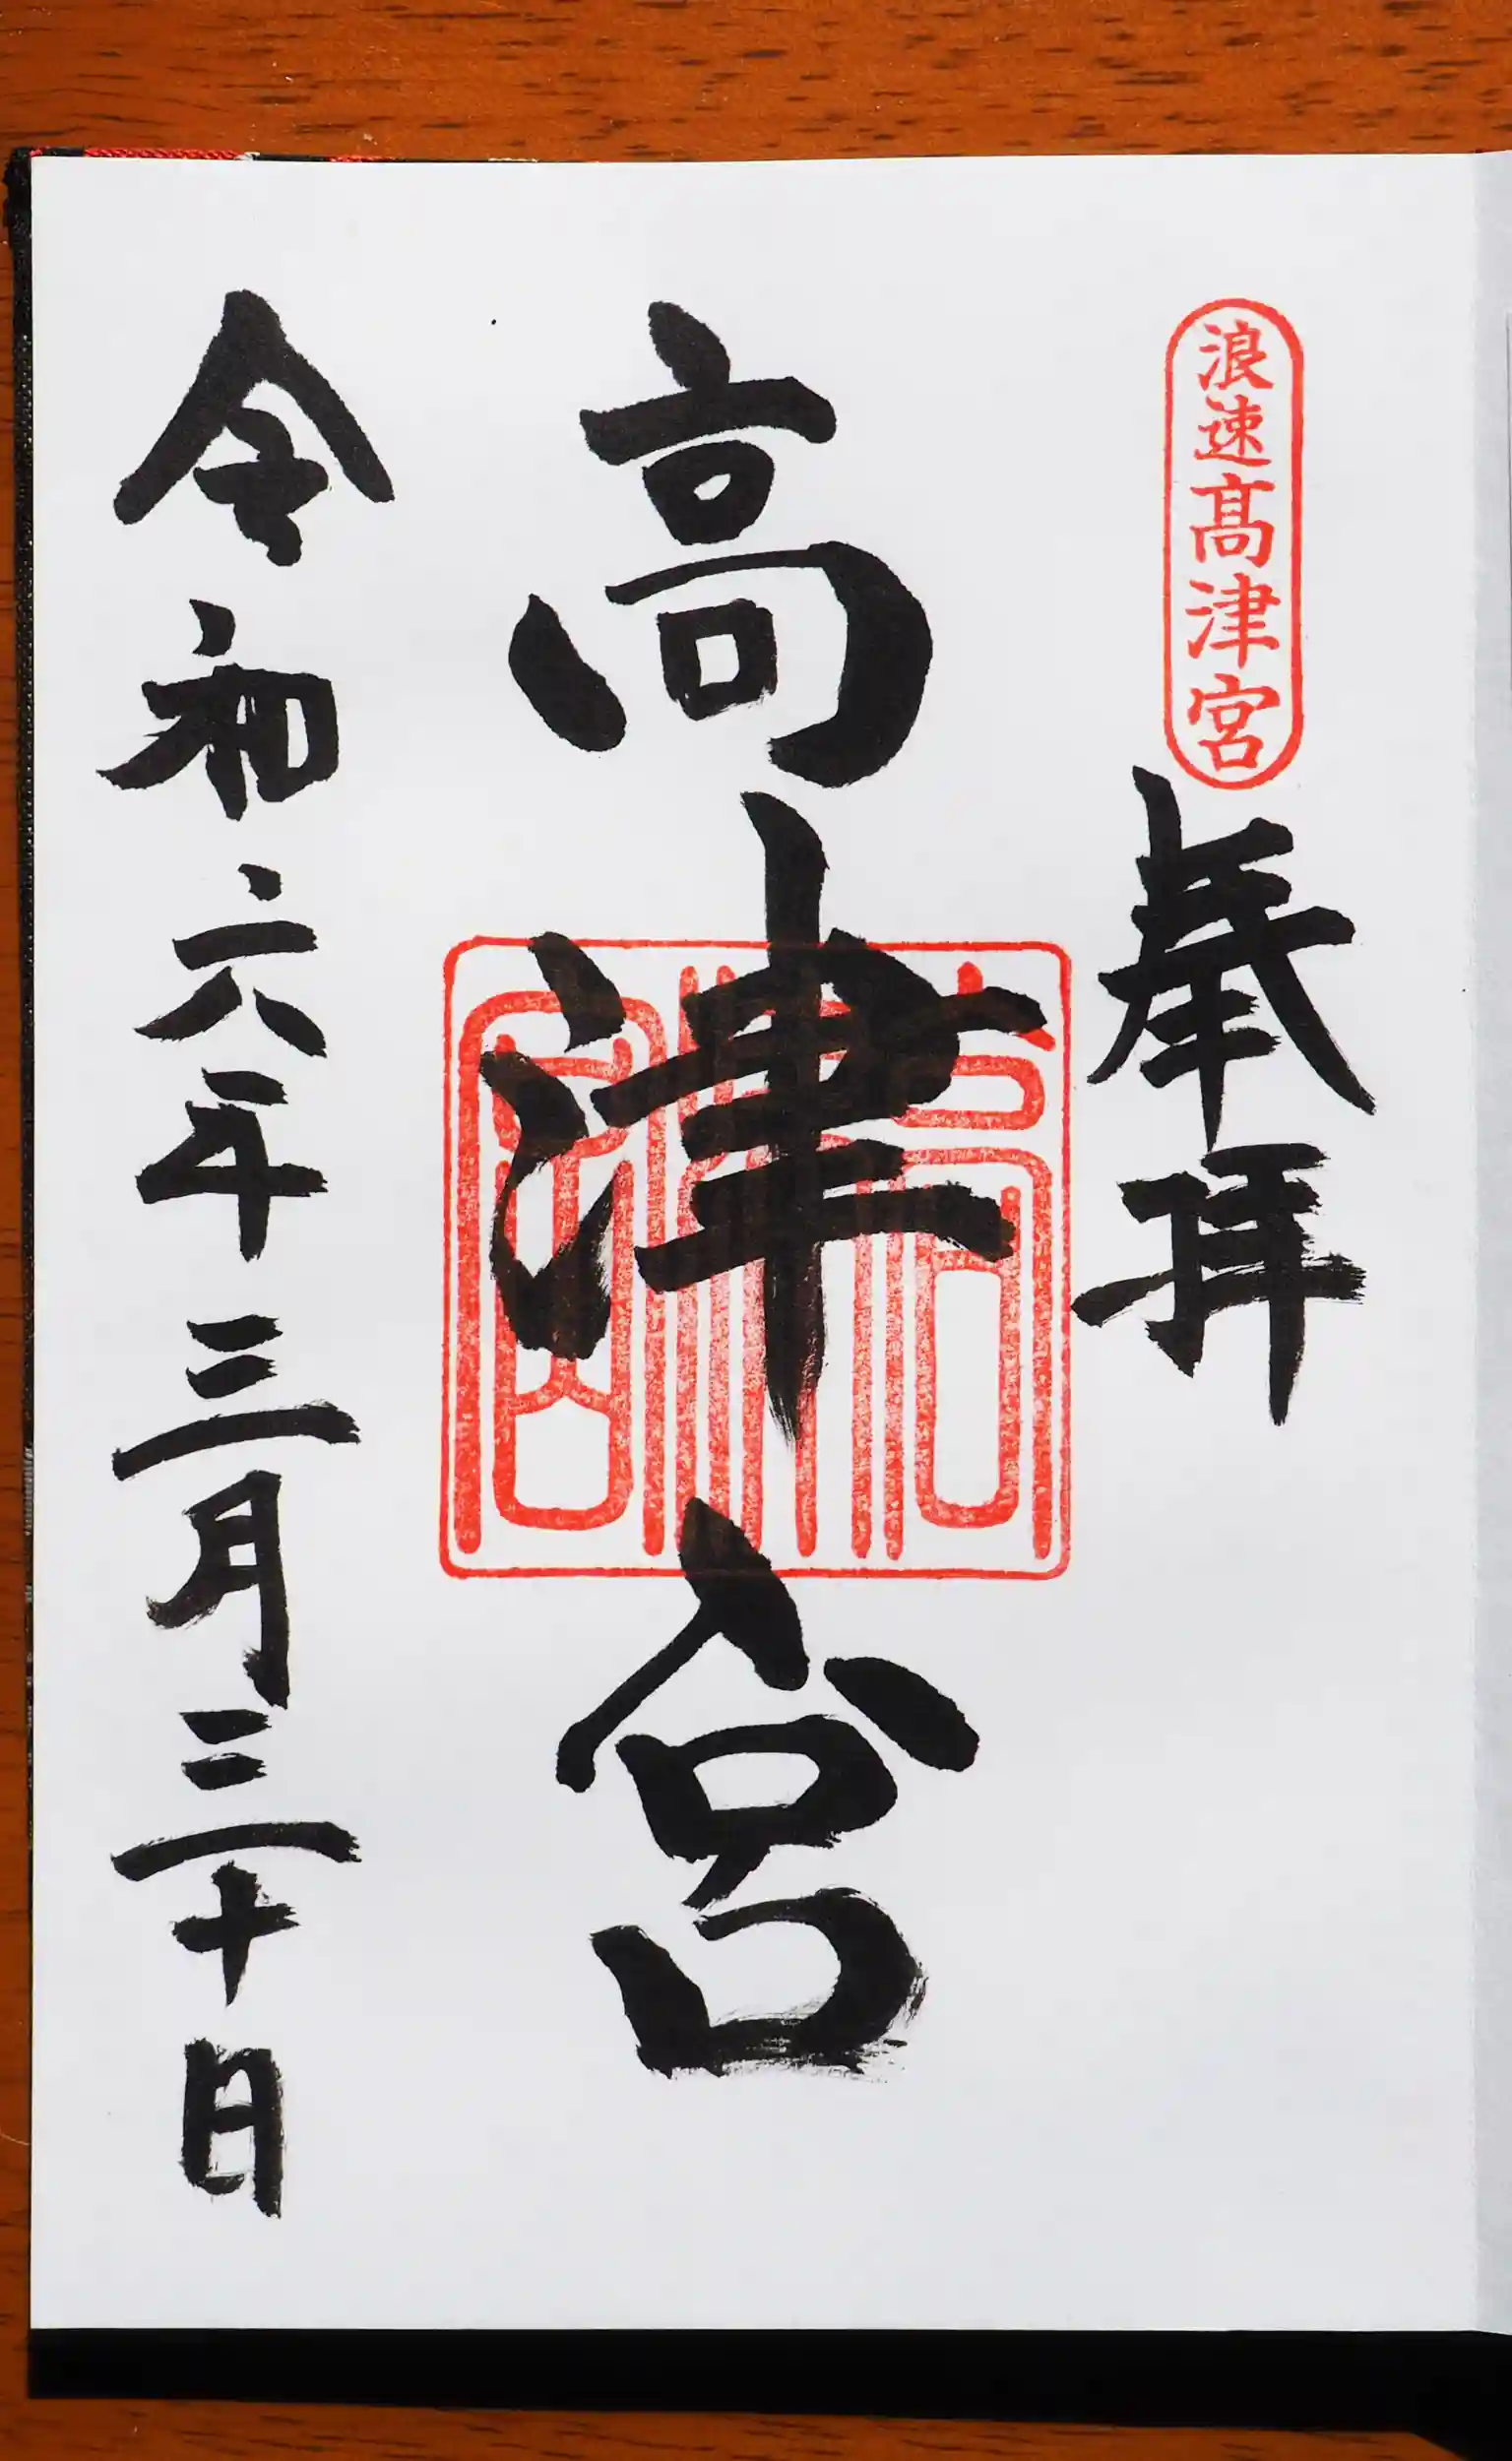 浪速髙津宮
奉拝
高津宮
高津宮
令和六年三月三十日